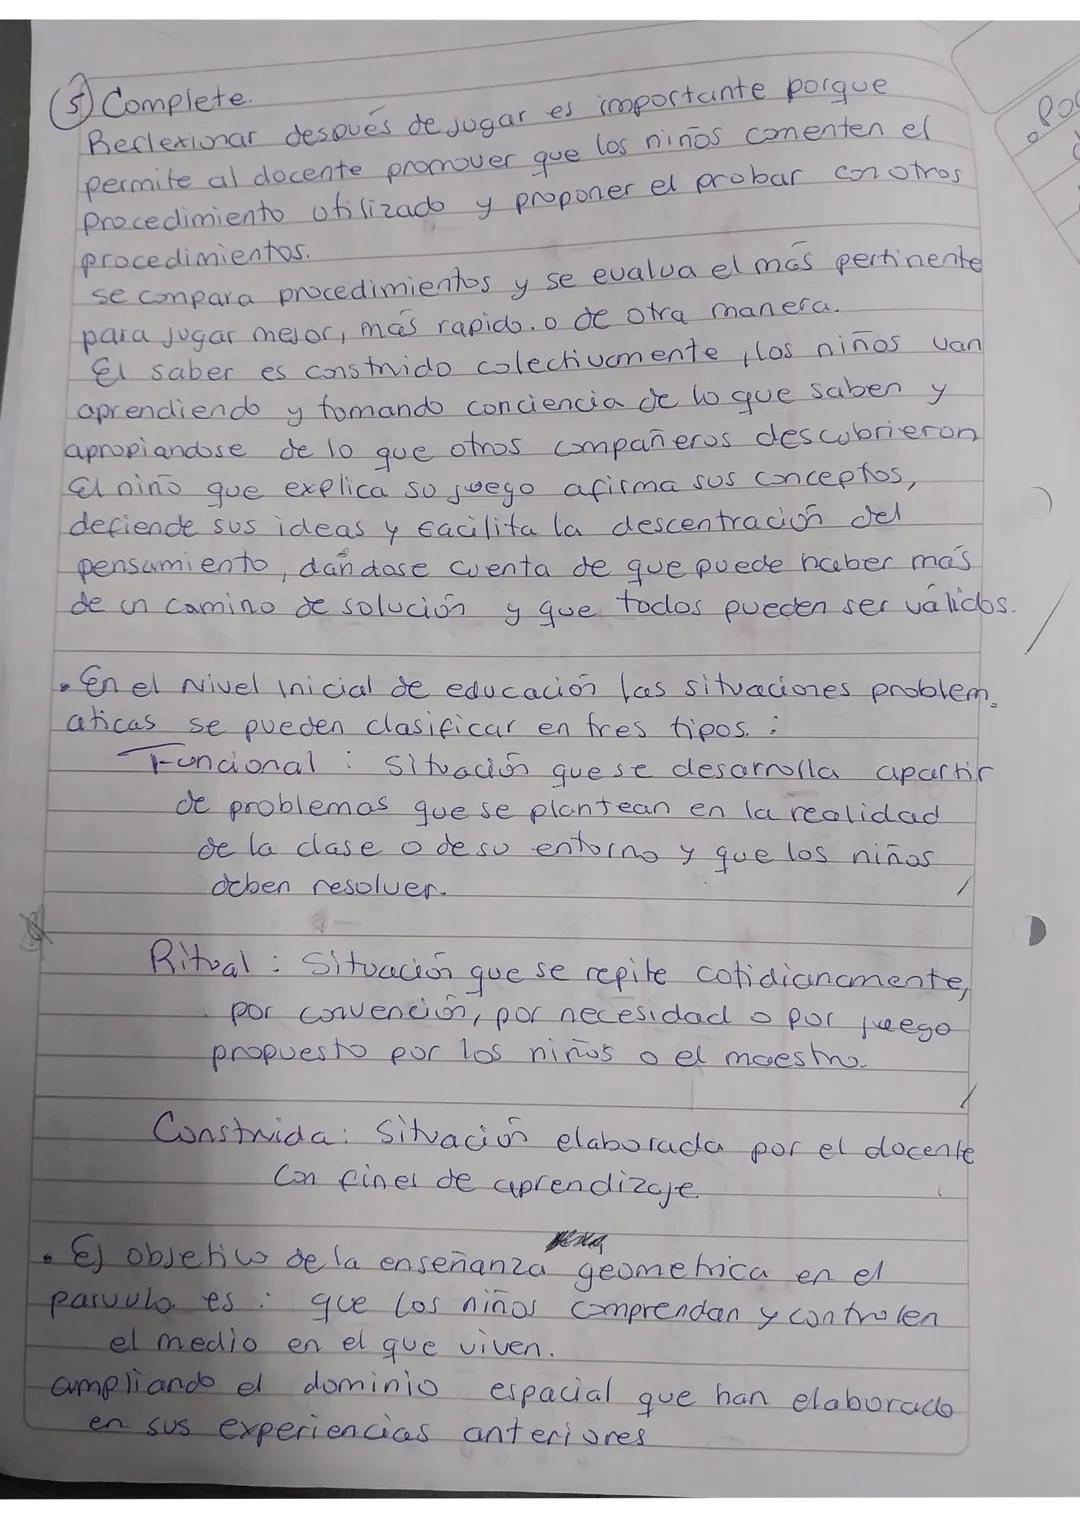 5) Complete.
Reflexionar después de jugar es importante porque
permite al docente promover que los niños comenten el
procedimiento utilizado y proponer el probar con otros
procedimientos.
se compara procedimientos y se evalua el más pertinente
para jugar mejor, más rapido. o de otra manera.
El saber es construido colectivamente, los niños van
aprendiendo y tomando conciencia de lo que saben y
apropiandose de lo que otros compañeros descubrieron
El niño que explica su juego afirma sus conceptos,
defiende sus ideas y facilita la descentración del
pensamiento, dándose cuenta de que puede haber más
de un camino de solución y que todos pueden ser válidos.
• En el Nivel Inicial de educación las situaciones problem.
aticas se pueden clasificar en tres tipos. :
Funcional : Situación que se desarrolla apartir
de problemas que se plantean en la realidad
de la clase o de su entorno y que los niños
deben resolver.
Ritual : Situación que se repite cotidianamente,
por convención, por necesidad o por juego
propuesto por los niños o el maestro.
Construida : Situación elaborada por el docente
con fines de aprendizaje
• El objetivo de la enseñanza geometrica en el
parvulo es : que los niños comprendan y controlen
el medio en el que viven.
ampliando el dominio espacial que han elaborado
en sus experiencias anteriores